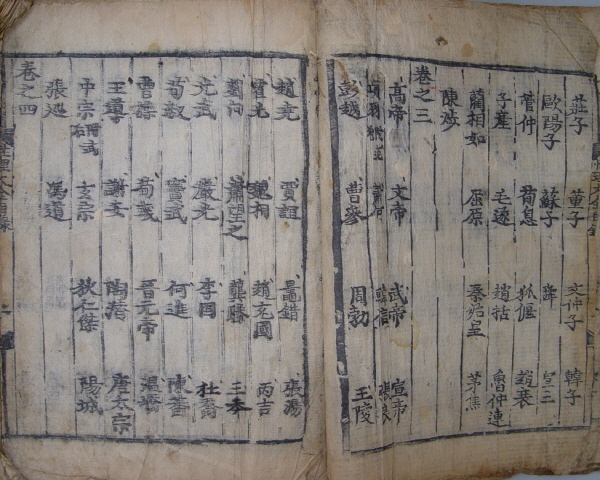 莊子 董子 文仲子 韓子
歐陽子 蘇子
管仲 荀息 狐偃 趙衰
子産 毛遂 趙括 魯仲連
藺相如 屈原 秦始皇 茅焦
陳涉
卷之三
高帝 文帝 武帝 宣帝
項羽 蕭何 韓信 張良
彭越 曹參 周勃 王陵
賈誼 鼂錯 張湯
霍光 魏相 趙充國 丙吉
劉向 蕭望之 龔勝 王莽
光武 嚴光 李固 杜喬
荀淑 竇武 何進 陳蕃
曹操 荀彧 晉元帝 溫嶠
王導 謝安 陶侃 唐太宗
中宗 玄宗 狄仁傑 陽城
張巡 馮道
卷之四